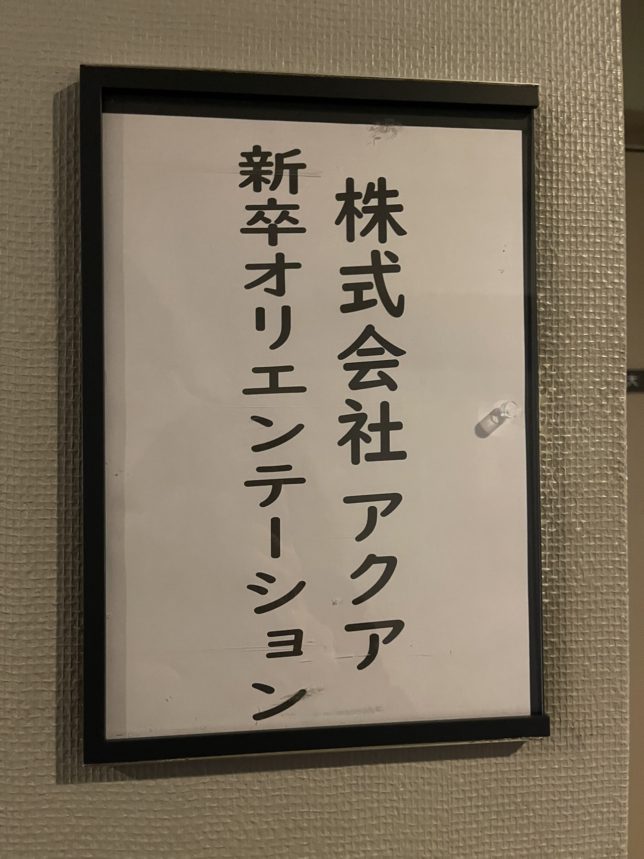 株式会社 アクア
新卒オリエンテーション
大